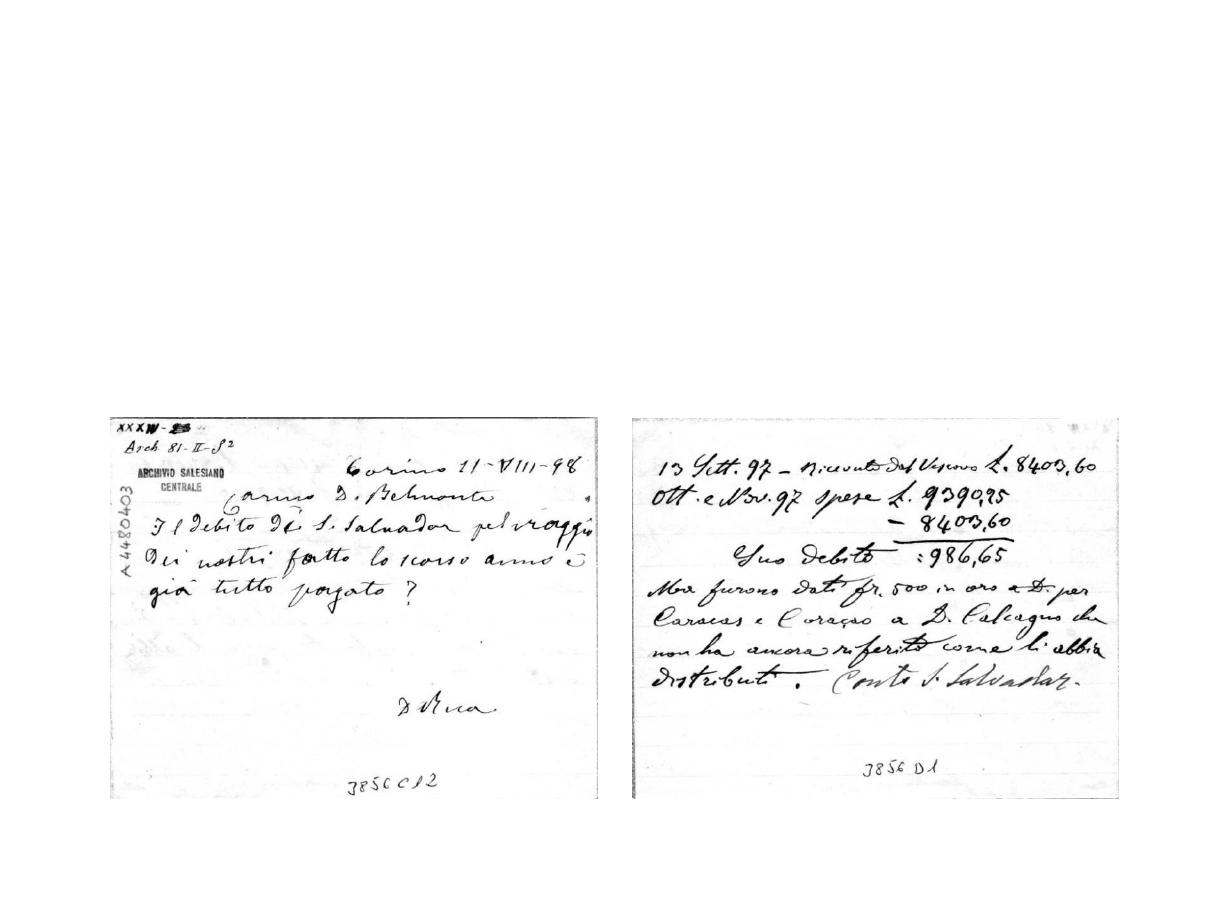 XXXIV-23
Arch 81-II-S2
ARCHIVIO SALESIANO
CENTRALE
A 4480403
Torino 11-VIII-98
Carino D. Belmonte
Il debito di S. Salvador pel viaggio
dei nostri fatto lo scorso anno è
già tutto pagato?
D Rua
3856 C12
13 Sett. 97 - Ricevuto dal Vescovo L. 8403,60
Ott. e Nov. 97 spese L. 9390,25
- 8403,60
Suo debito : 986,65
furono dati fr. 500 in oro a D. per
Caracas e Coraçao a D. Calcagno che
non ha ancora riferito come li abbia
distribuiti. Conto S. Salvador.
3856 D1